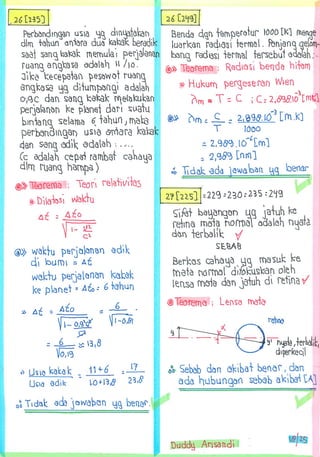 26 [235]
Perbandingan usia yg dinyatakan
dlm tahun antara dua kakak beradik
saat sang kakak memulai perjalanan
ruang angkasa adalah 11/10.
Jika kecepatan pesawat ruang
angkasa yg ditumpangi adalah
0,9c dan sang kakak melakukan
perjalanan ke planet dari suatu
bintang selama 6 tahun, maka
perbandingan usia antara kakak
dan sang adik adalah : ....
(c adalah cepat rambat cahaya
dlm ruang hampa)
@» Teorema : Teori relativitas
* Dilatasi waktu
Δt = Δto / √1 - v²/c²
@» waktu perjalanan adik
di bumi = Δt
waktu perjalanan kakak
ke planet = Δto = 6 tahun
» Δt = Δto / √1-0,9²c²/c² = 6 / √1-0,81
= 6 / √0,19 ≈ 13,8
» Usia kakak / Usia adik = 11+6 / 10+13,8 = 17 / 23,8
∴ Tidak ada jawaban yg benar.
26 [249]
Benda dgn temperatur 1000 [K] menge
luarkan radiasi termal. Panjang gelom-
bang radiasi termal tersebut adalah :-
@» Teorema : Radiasi benda hitam
* Hukum pergeseran Wien
λm • T = C ; C = 2,898.10⁻³ [mK]
@» λm = C / T = 2,898.10⁻³ [m.K] / 1000
= 2,989.10⁻⁶ [m]
= 2,989 [nm]
∴ Tidak ada jawaban yg benar
27 [225] = 229 = 230 = 235 = 249
Sifat bayangan yg jatuh ke
retina mata normal adalah nyata
dan terbalik ✓
SEBAB
Berkas cahaya yg masuk ke
mata normal difokuskan oleh
lensa mata dan jatuh di retina ✓
@ Teorema : Lensa mata
retina
y
y' nyata, terbalik,
diperkecil
∴ Sebab dan akibat benar, dan
ada hubungan sebab akibat [A]
Duddy Arisandi
18/25